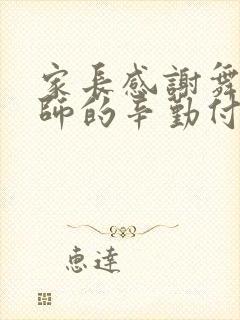 家長感謝舞
師的辛勤付
恵達